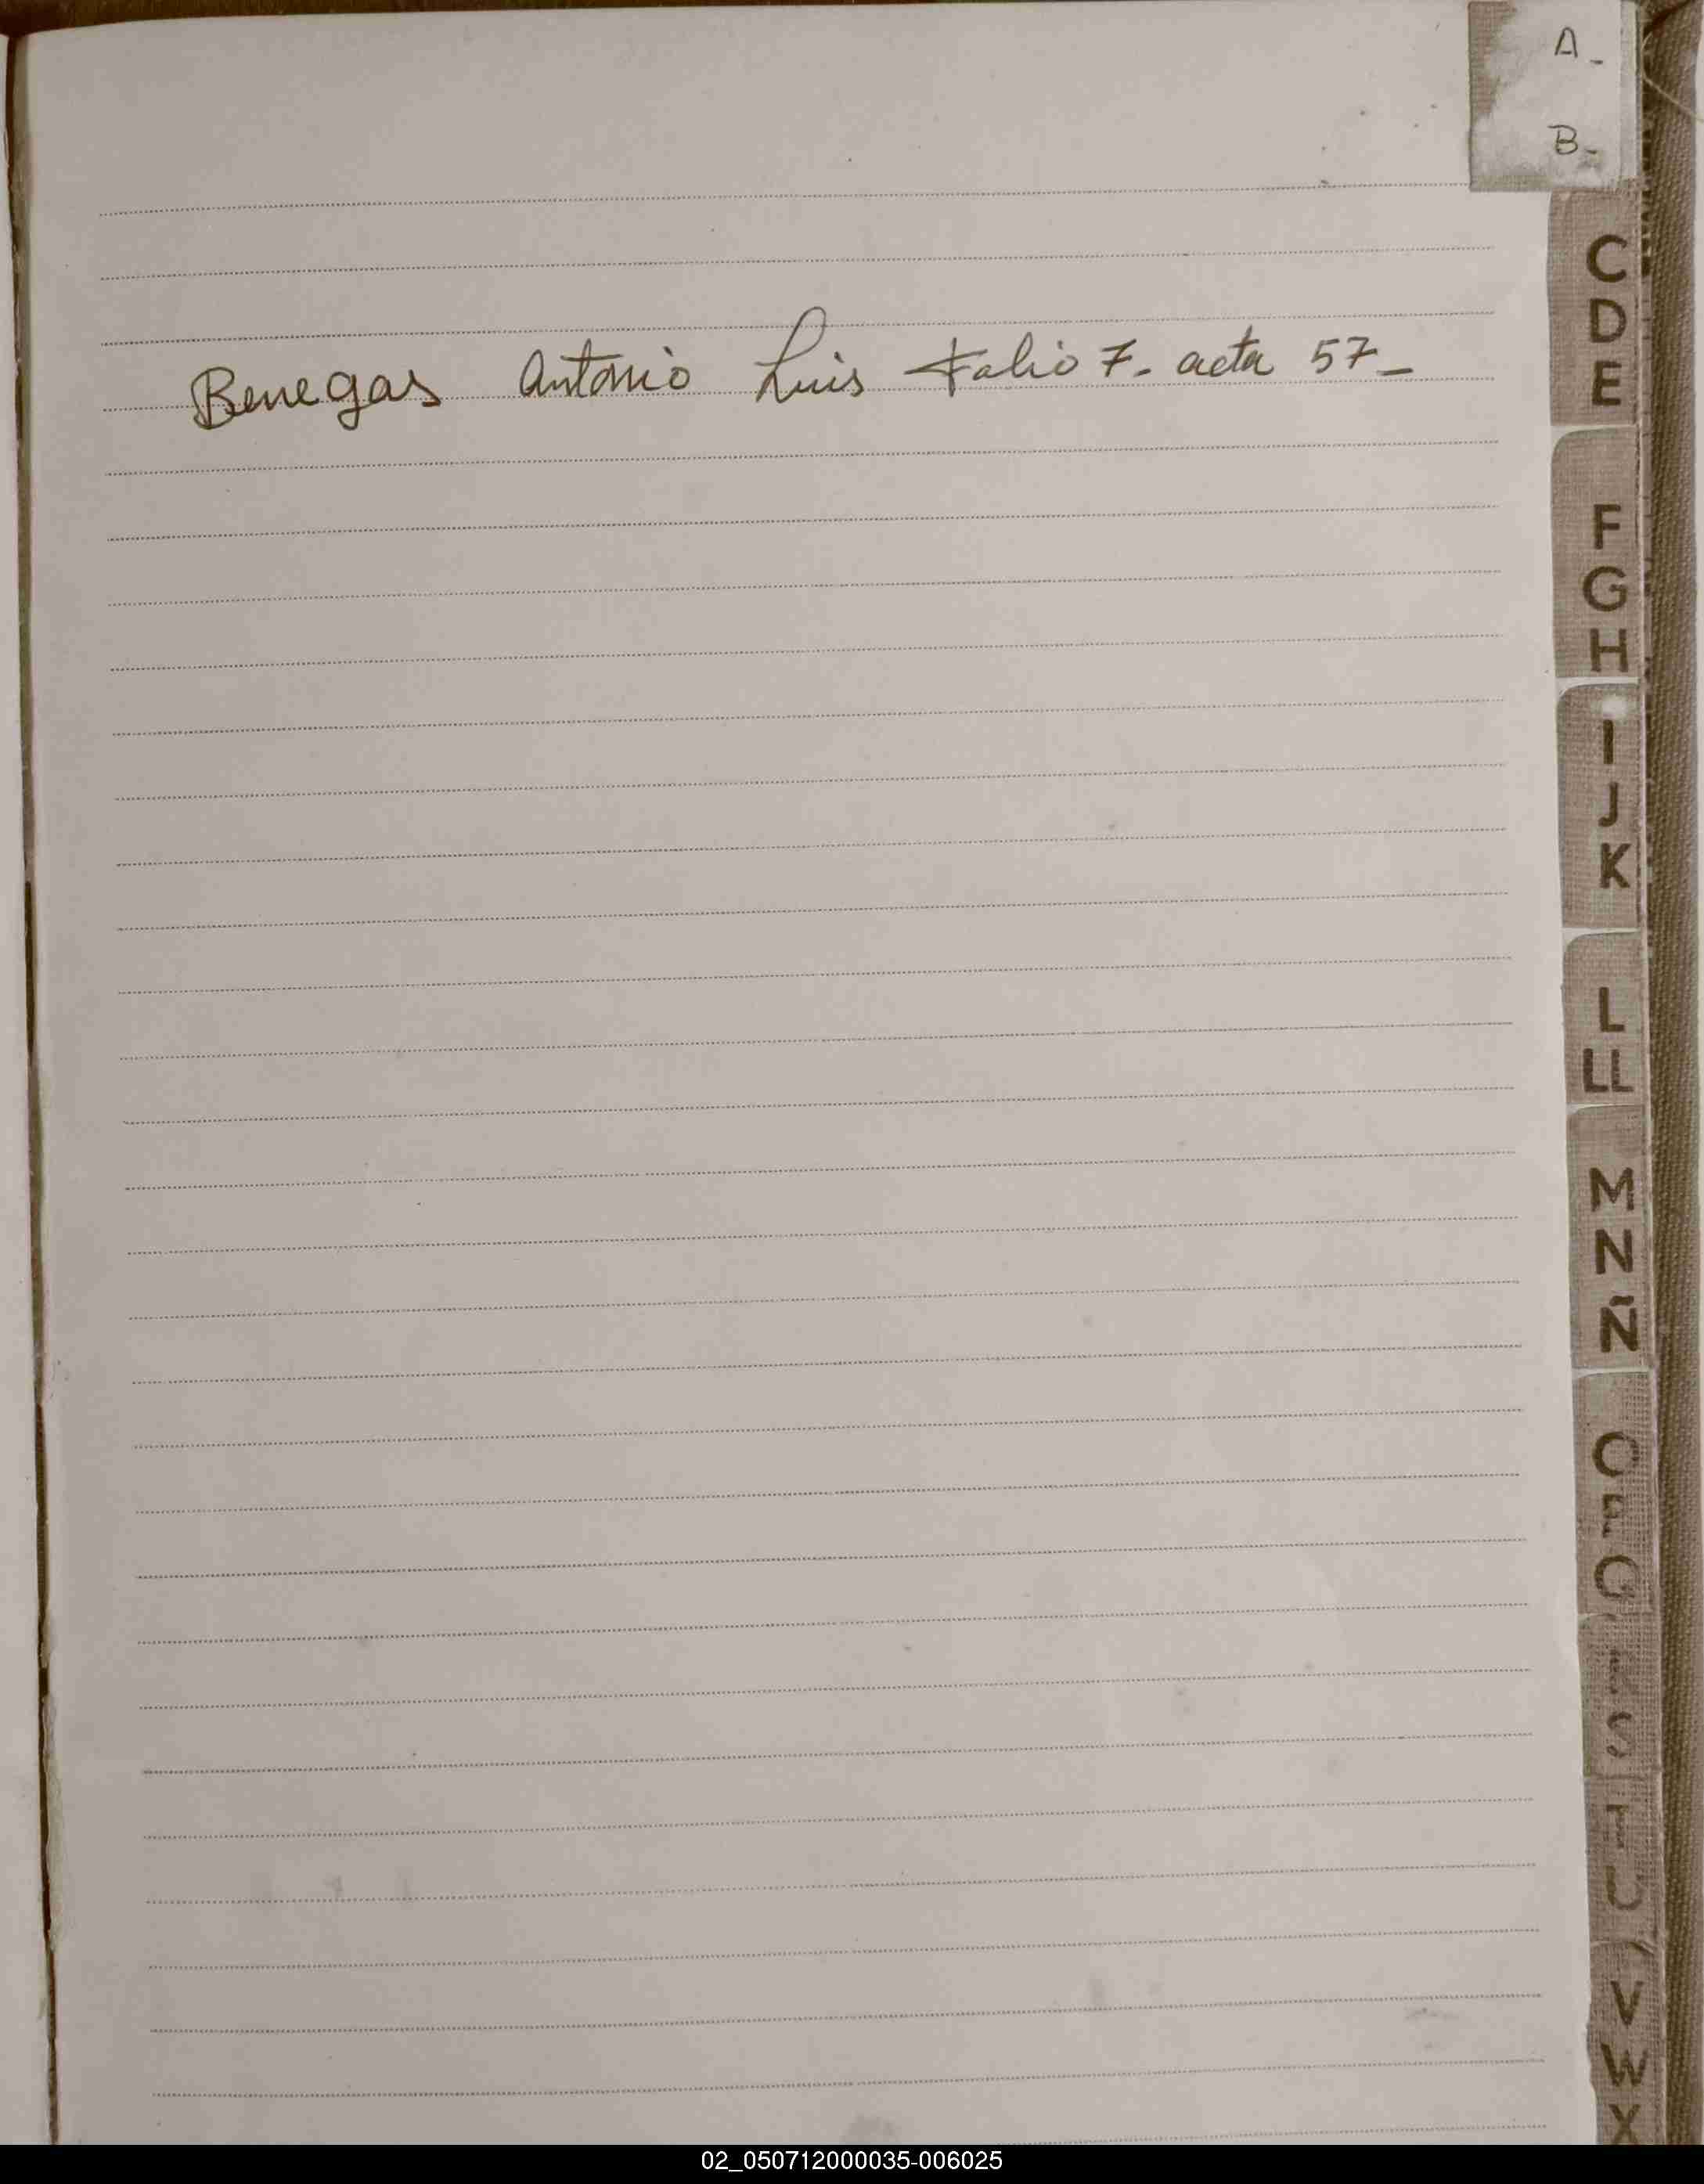 A-
B-
Benegas Antonio Luis Folio 7- acta 57-
C
D
E
F
G
H
I
J
K
L
LL
M
N
Ñ
S
V
W
X
02_050712000035-006025